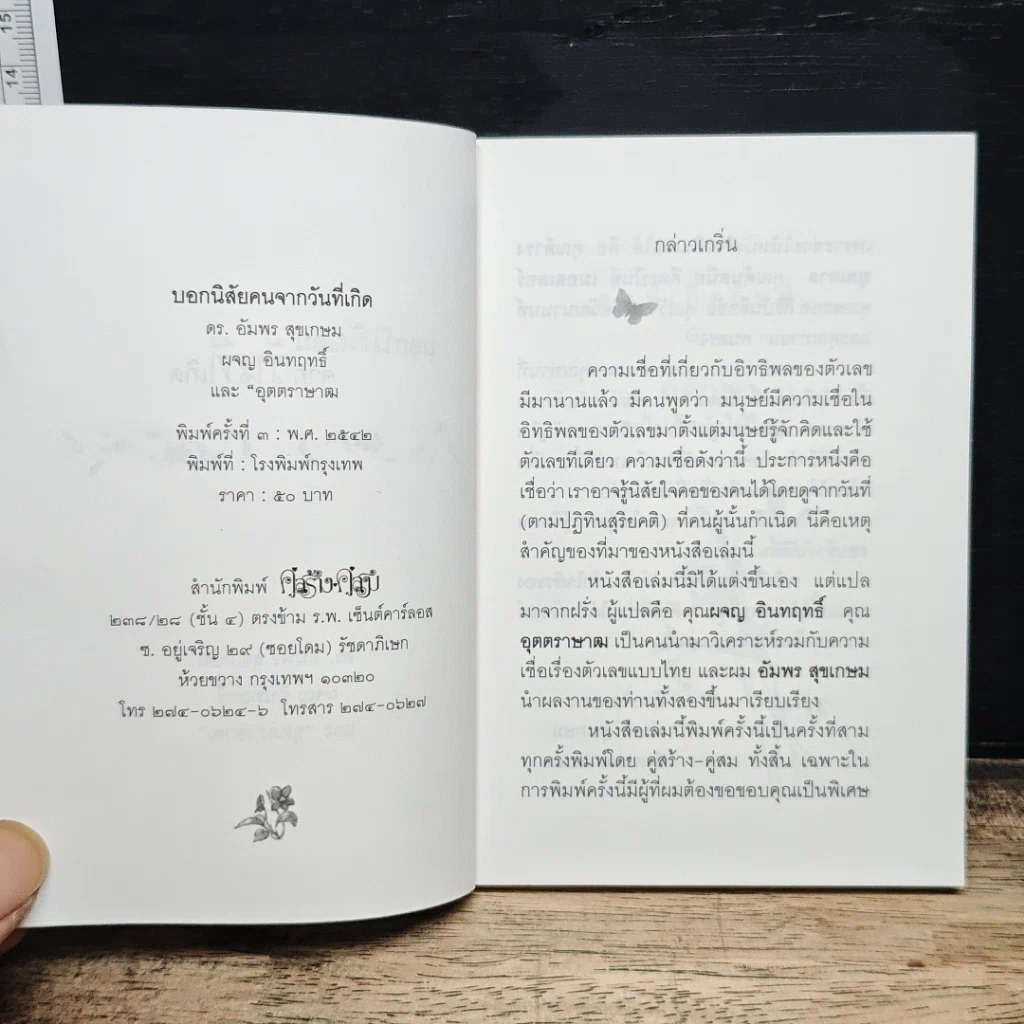 15
14
บอกนิสัยคนจากวันที่เกิด
ดร. อัมพร สุขเกษม
ผจญ อินทฤทธิ์
และ “อุตตราษาฒ
พิมพ์ครั้งที่ ๓ : พ.ศ. ๒๕๔๒
พิมพ์ที่ : โรงพิมพ์กรุงเทพ
ราคา : ๕๐ บาท
สำนักพิมพ์ คู่สร้าง-คู่สม
๒๓๘/๒๘ (ชั้น ๔) ตรงข้าม ร.พ. เซ็นต์คาร์ลอส
ซ. อยู่เจริญ ๒๙ (ซอยโดม) รัชดาภิเษก
ห้วยขวาง กรุงเทพฯ ๑๐๓๒๐
โทร ๒๗๔-๐๖๒๔-๖ โทรสาร ๒๗๔-๐๖๒๗
กล่าวเกริ่น
ความเชื่อที่เกี่ยวกับอิทธิพลของตัวเลข
มีมานานแล้ว มีคนพูดว่า มนุษย์มีความเชื่อใน
อิทธิพลของตัวเลขมาตั้งแต่มนุษย์รู้จักคิดและใช้
ตัวเลขทีเดียว ความเชื่อดังว่านี้ ประการหนึ่งคือ
เชื่อว่า เราอาจรู้นิสัยใจคอของคนได้โดยดูจากวันที่
(ตามปฏิทินสุริยคติ) ที่คนผู้นั้นกำเนิด นี่คือเหตุ
สำคัญของที่มาของหนังสือเล่มนี้
หนังสือเล่มนี้มิได้แต่งขึ้นเอง แต่แปล
มาจากฝรั่ง ผู้แปลคือ คุณผจญ อินทฤทธิ์ คุณ
อุตตราษาฒ เป็นคนนำมาวิเคราะห์รวมกับความ
เชื่อเรื่องตัวเลขแบบไทย และผม อัมพร สุขเกษม
นำผลงานของท่านทั้งสองขึ้นมาเรียบเรียง
หนังสือเล่มนี้พิมพ์ครั้งนี้เป็นครั้งที่สาม
ทุกครั้งพิมพ์โดย คู่สร้าง-คู่สม ทั้งสิ้น เฉพาะใน
การพิมพ์ครั้งนี้มีผู้ที่ผมต้องขอขอบคุณเป็นพิเศษ